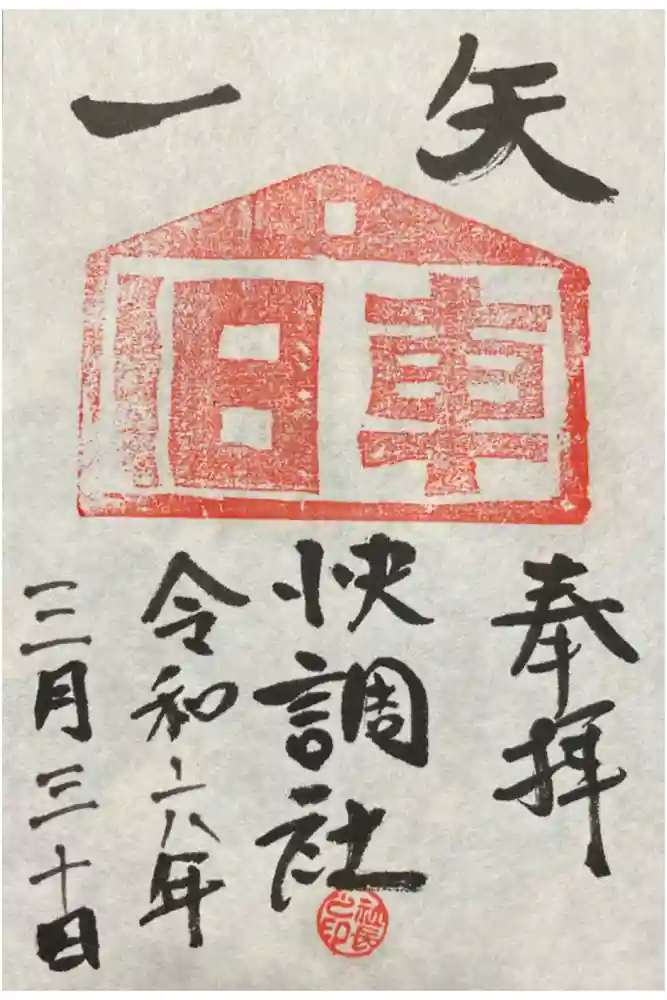 矢一
旧車
奉拝
快調社
社長之印
令和六年
三月三十日